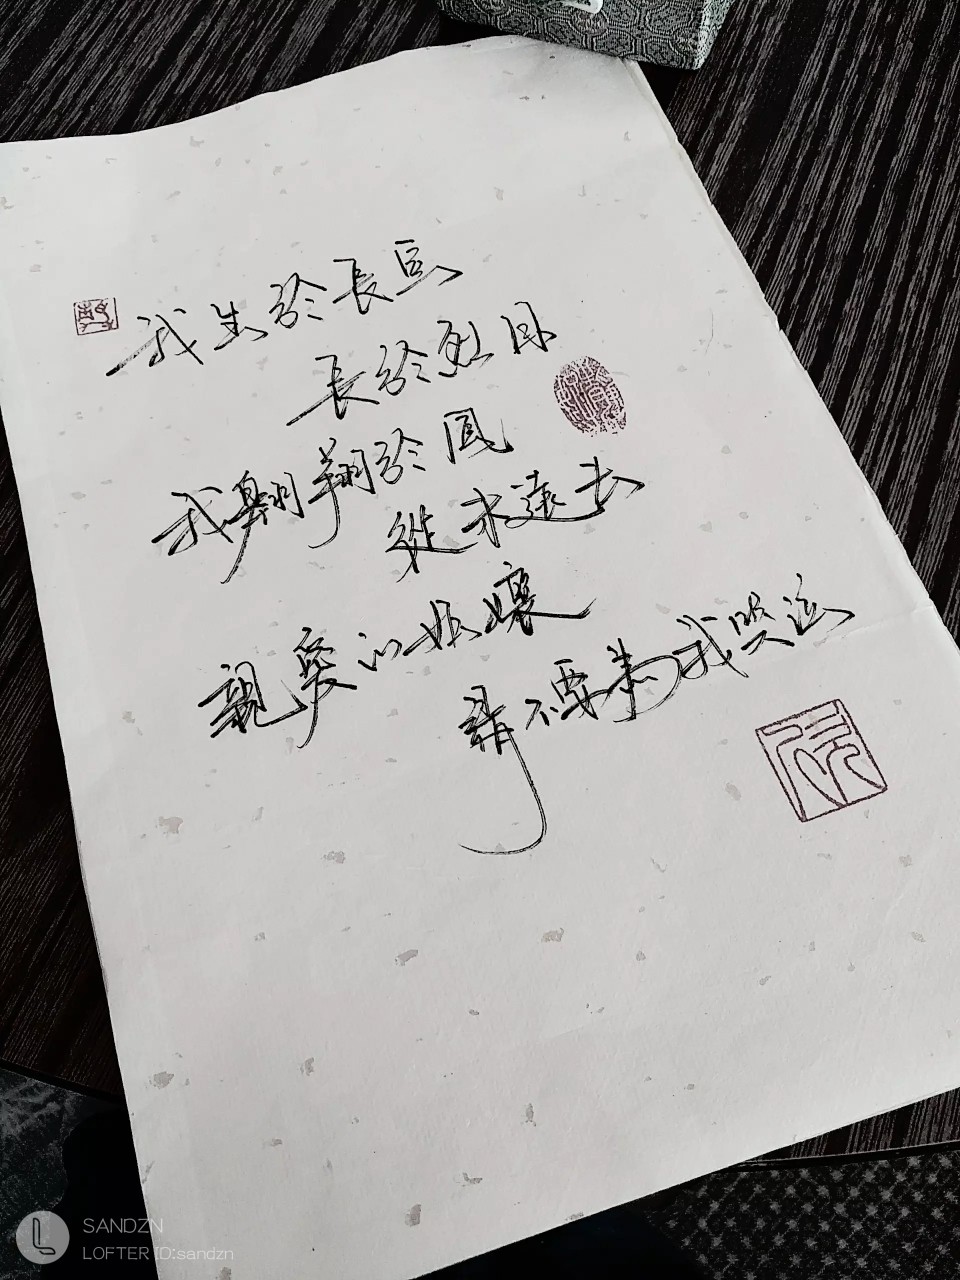 我生於長夜
長於烈日
我翱翔於風
從未遠去
親愛的姑娘
請不要為我哭泣
SANDZN
LOFTER ID:sandzn